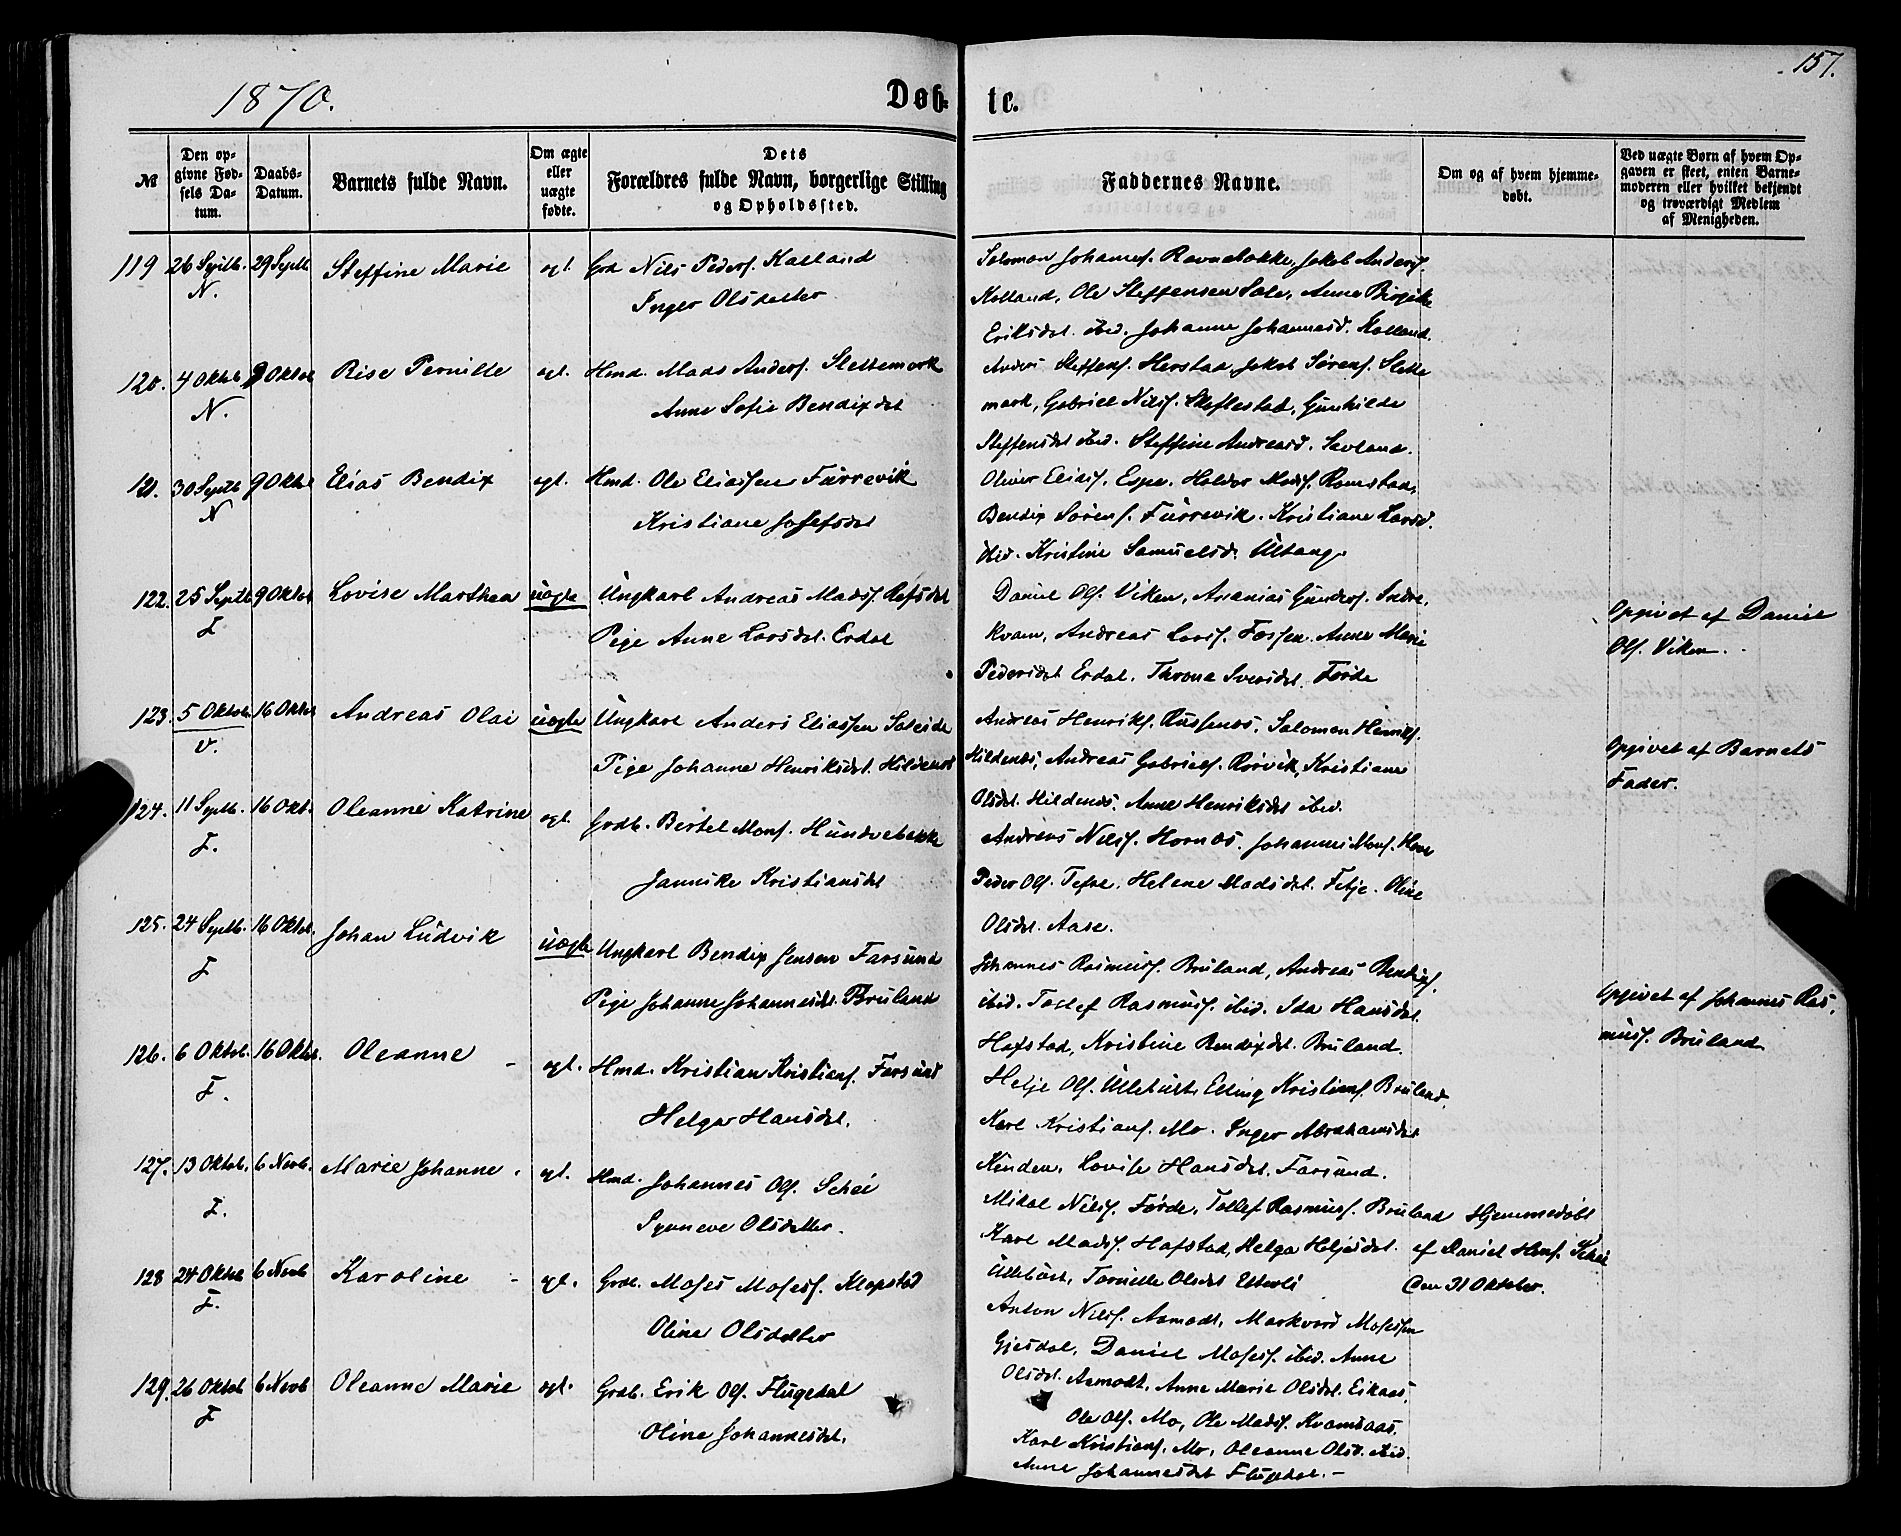 157.
1870. Døb- te.
№
Den opgivne Fødsels Datum.
Daabs-Datum.
Barnets fulde Navn.
Om ægte eller uægte fødte.
Dets Forældres fulde Navn, borgerlige Stilling og Opholdssted.
Faddernes Navne.
Om og af hvem hjemmedøbt.
Ved uægte Børn af hvem Opgaven er skeet, enten Barnemoderen eller hvilket bekjendt og troværdigt Medlem af Menigheden.
119 26 Septb. 29 Septb Steffine Marie egt. Grd Nils Peders. Kalland
N. Inger Olsdatter
Salomon Johannes. Ravnebakke, Jakob Anders.
Kalland, Ole Steffensen Sole, Anne Birgitte
Eriksdat. ibid. Johanne Johannesd. Kalland.
120. 4 Oktob 9 Oktob Rise Pernille egt. Hmd. Mads Anders. Slettemark
N. Anne Sofie Bendixdat
Anders Steffens. Herstad, Jakob Sørens. Slette
mark, Gabriel Nils. Skeflestad, Gunhilde
Steffensdat ibid. Steffine Andreasd. Savland.
121. 30 Septb 9 Oktob Elias Bendix egt. Hmd. Ole Eliassen Furrevik
N Kristiane Josefsdat
Oliver Elias. Espe. Haldor Mads. Ramstad,
Bendix Sørens. Furrevik. Kristiane Larsd.
ibid. Kristine Samuelsd. Uttang.
122. 25 Septb 9 Oktob Lovise Marthea uægte Ungkarl Andreas Mads. Refsdal
F Pige Anne Larsdat. Erdal
Daniel Ols. Viken, Ananias Gunders. Indre
kvam, Andreas Lars. Fossen. Anne Marie
Pedersdat Erdal. Throne Iversdat. Førde
Opgivet af Daniel
Ols. Viken.
123. 5 Oktob. 16 Oktob Andreas Olai uægte Ungkarl Anders Eliassen Soleide
V. Pige Johanne Henriksdat. Hildenes
Andreas Henriks. Russenes. Salomon Henriks.
Hildenes, Andreas Gabriels. Rørvik, Kristiane
Olsdat. Hildenes. Anne Henriksdat ibid.
Opgivet af Barnets
Fader.
124. 11 Septb. 16 Okt. Oleanne Katrine egt. Grdb. Bertel Mons. Hundvebakke
F. Jannike Kristiansdat
Andreas Nils. Hornes. Johannes Mons. Hove
Peder Ols. Tefre. Helene Madsdat. Fitje. Oline
Olsdat. Aase.
125. 24 Septb. 16 Oktob. Johan Ludvik uægte Ungkarl Bendix Jensen Farsund
F Pige Johanne Johannesdat. Bruland
Johannes Rasmus. Bruland, Andreas Bendix.
ibid. Tollef Rasmus. ibid. Ida Hansdat.
Hafstad, Kristine Bendixdat. Bruland.
Opgivet af Johannes Ras
mus. Bruland
126. 6 Oktob. 16 Oktob. Oleanne - egt. Hmd. Kristian Kristians. Farsund
F. Helga Hansdat.
Helje Ols. Ulletuet. Elling Kristians. Bruland,
Karl Kristians. Mo. Inger Abrahamsdat
Kinden, Lovise Hansdat. Farsund.
127. 13 Oktob. 6 Novb. Marie Johanne. egt. Hmd. Johannes Ols. Schei
F. Synneve Olsdatter.
Mikal Nils. Førde, Tollef Rasmus. Bruland
Karl Mads. Hafstad, Helga Heljesdat.
Ulletuet, Olsdat
Hjemmedøbt
af Daniel Hans. Schei
den 31 Oktober.
128 24 Oktob 6 Novb Karoline - egt. Grdb. Moses Moses. Klopstad
F. Oline Olsdatter
Anton Nils. Aamodt, Markvard Mosessen
Gjesdal, Daniel Moses. ibid. Anne
Olsdat. Aamodt, Anne Marie Olsdat. Eikaas,
129. 26 Oktob 6 Novb Oleanne Marie egt. Grdb. Erik Ols. Flugedal
F Oline Johannesdat.
Ole Ols. Mo, Ole Mads. Kvamsaas.
Karl Kristians. Mo, Oleanne Olsd. ibid.
Anne Johannesdat Flugedal. -